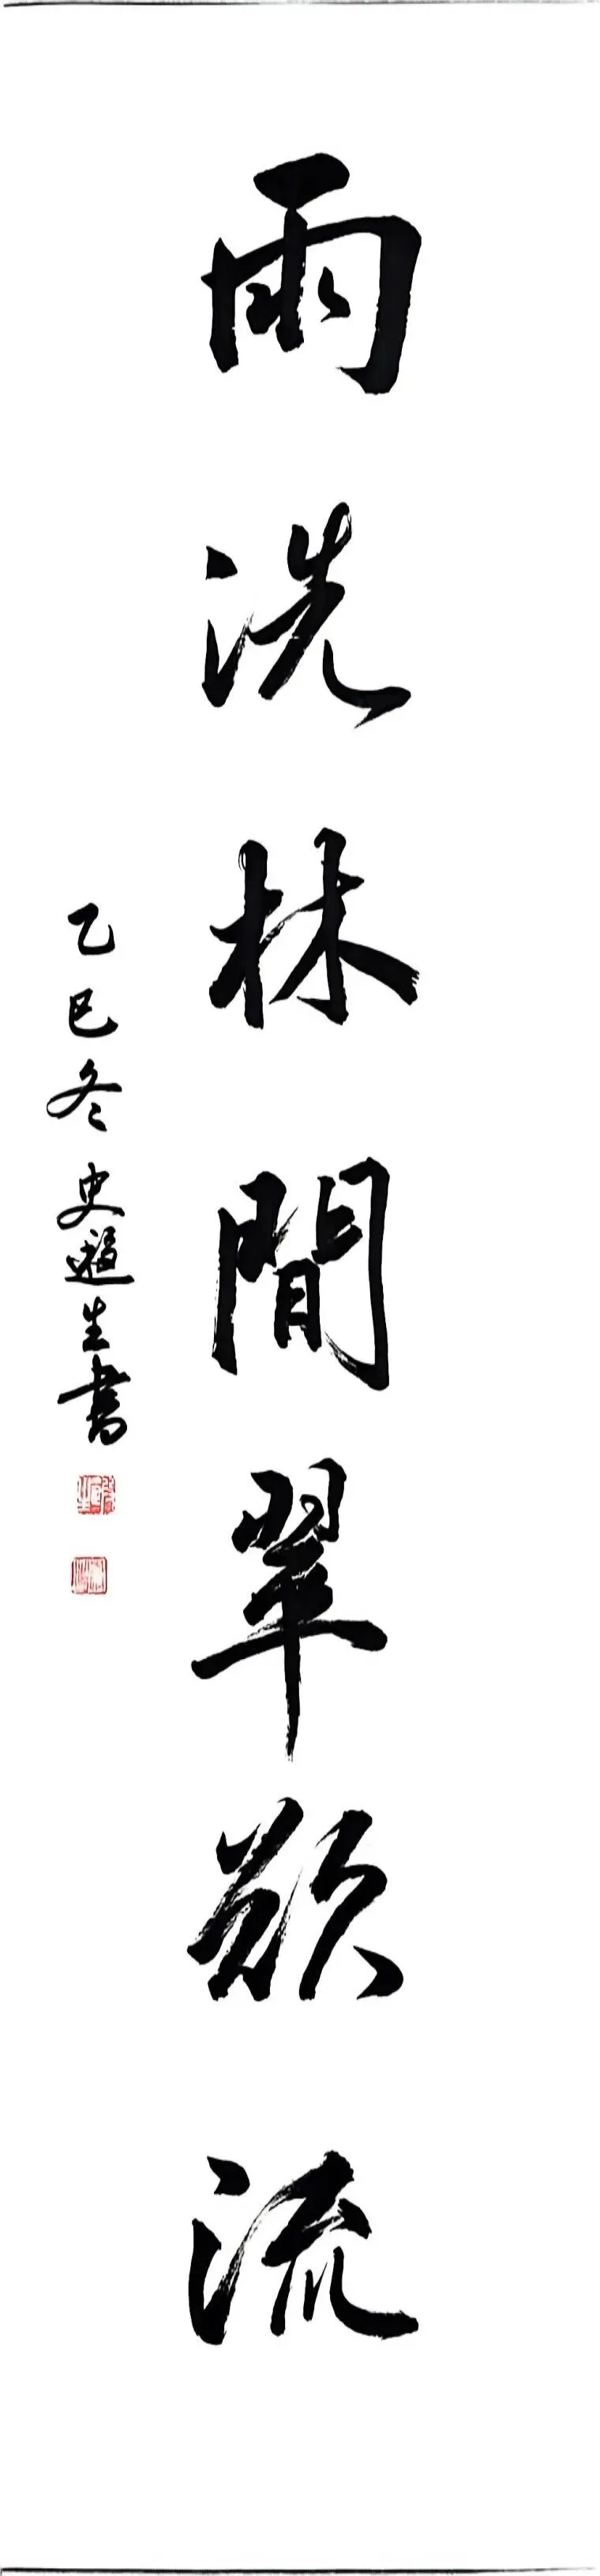 雨洗林間翠欲流
乙巳冬史遜生書